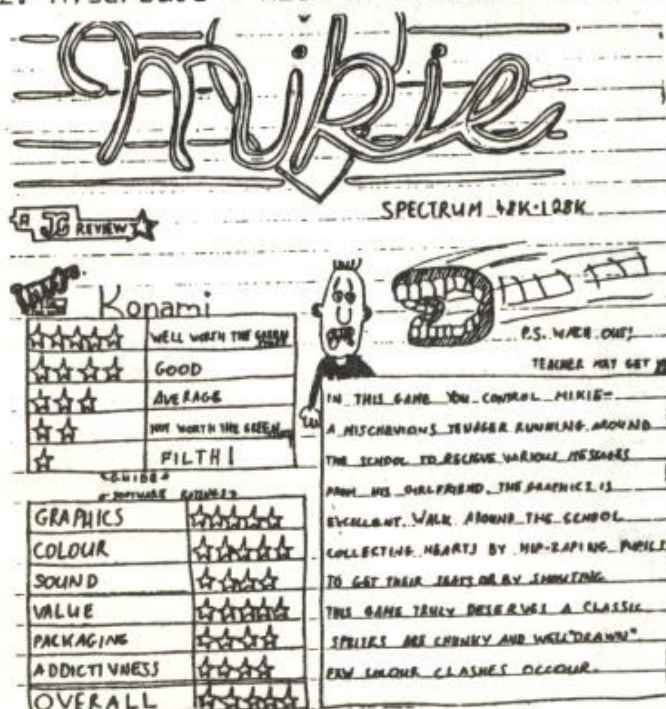 mikie
SPECTRUM 48K-128K
A JG REVIEW
Konami
☆☆☆☆☆ WELL WORTH THE GREEN
☆☆☆☆ GOOD
☆☆☆ AVERAGE
☆☆ NOT WORTH THE GREEN
☆ FILTH!
GUIDE
SOFTWARE RATINGS
GRAPHICS ☆☆☆☆☆
COLOUR ☆☆☆☆☆
SOUND ☆☆☆☆
VALUE ☆☆☆☆☆
PACKAGING ☆☆☆☆
ADDICTIVNESS ☆☆☆☆
OVERALL ☆☆☆☆☆
P.S. WATCH OUT!
TEACHER MAY GET
IN THIS GAME YOU CONTROL MIKIE-
A MISCHEVIONS TENAGER RUNNING AROUND
THE SCHOOL TO RECIEVE VARIOUS MESSAGES
FROM HIS GIRLFRIEND. THE GRAPHICS IS
EXCELLENT. WALK AROUND THE SCHOOL
COLLECTING HEARTS BY HIP-ZAPING PUPILS
TO GET THEIR SEATS OR BY SHOUTING
THIS GAME TRULY DESERVES A CLASSIC
SPRITES ARE CHUNKY AND WELL "DRAWN"
FEW COLOUR CLASHES OCCOUR.